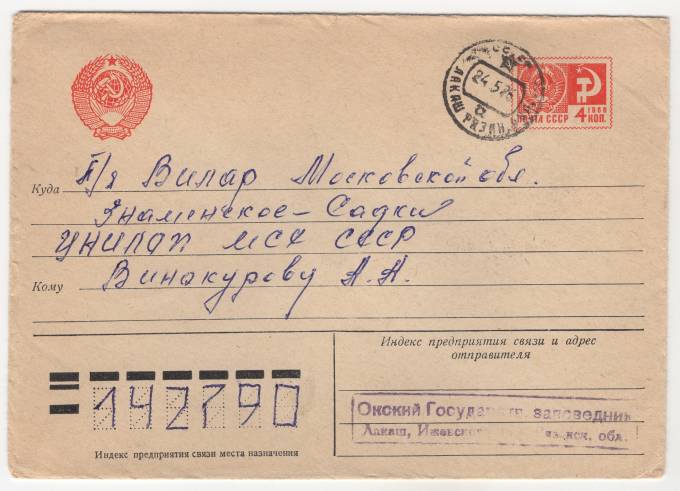 СССР
24.5.7
ЛАКАШ РЯЗАН.
ПОЧТА СССР
1966
4 КОП.
Куда П/я Вилар Московской обл.
Знаменское-Садки
ЦНИЛАП МСХ СССР
Кому Винокурову А.А.
Индекс предприятия связи и адрес
отправителя
142790
Индекс предприятия связи места назначения
Окский Государств. заповедник
Лакаш, обл.